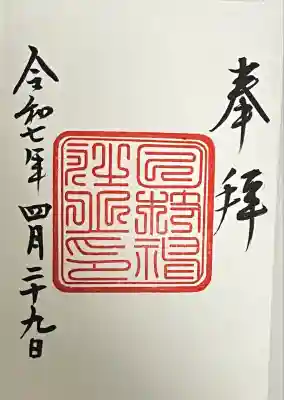 奉拝
令和七年 四月二十九日